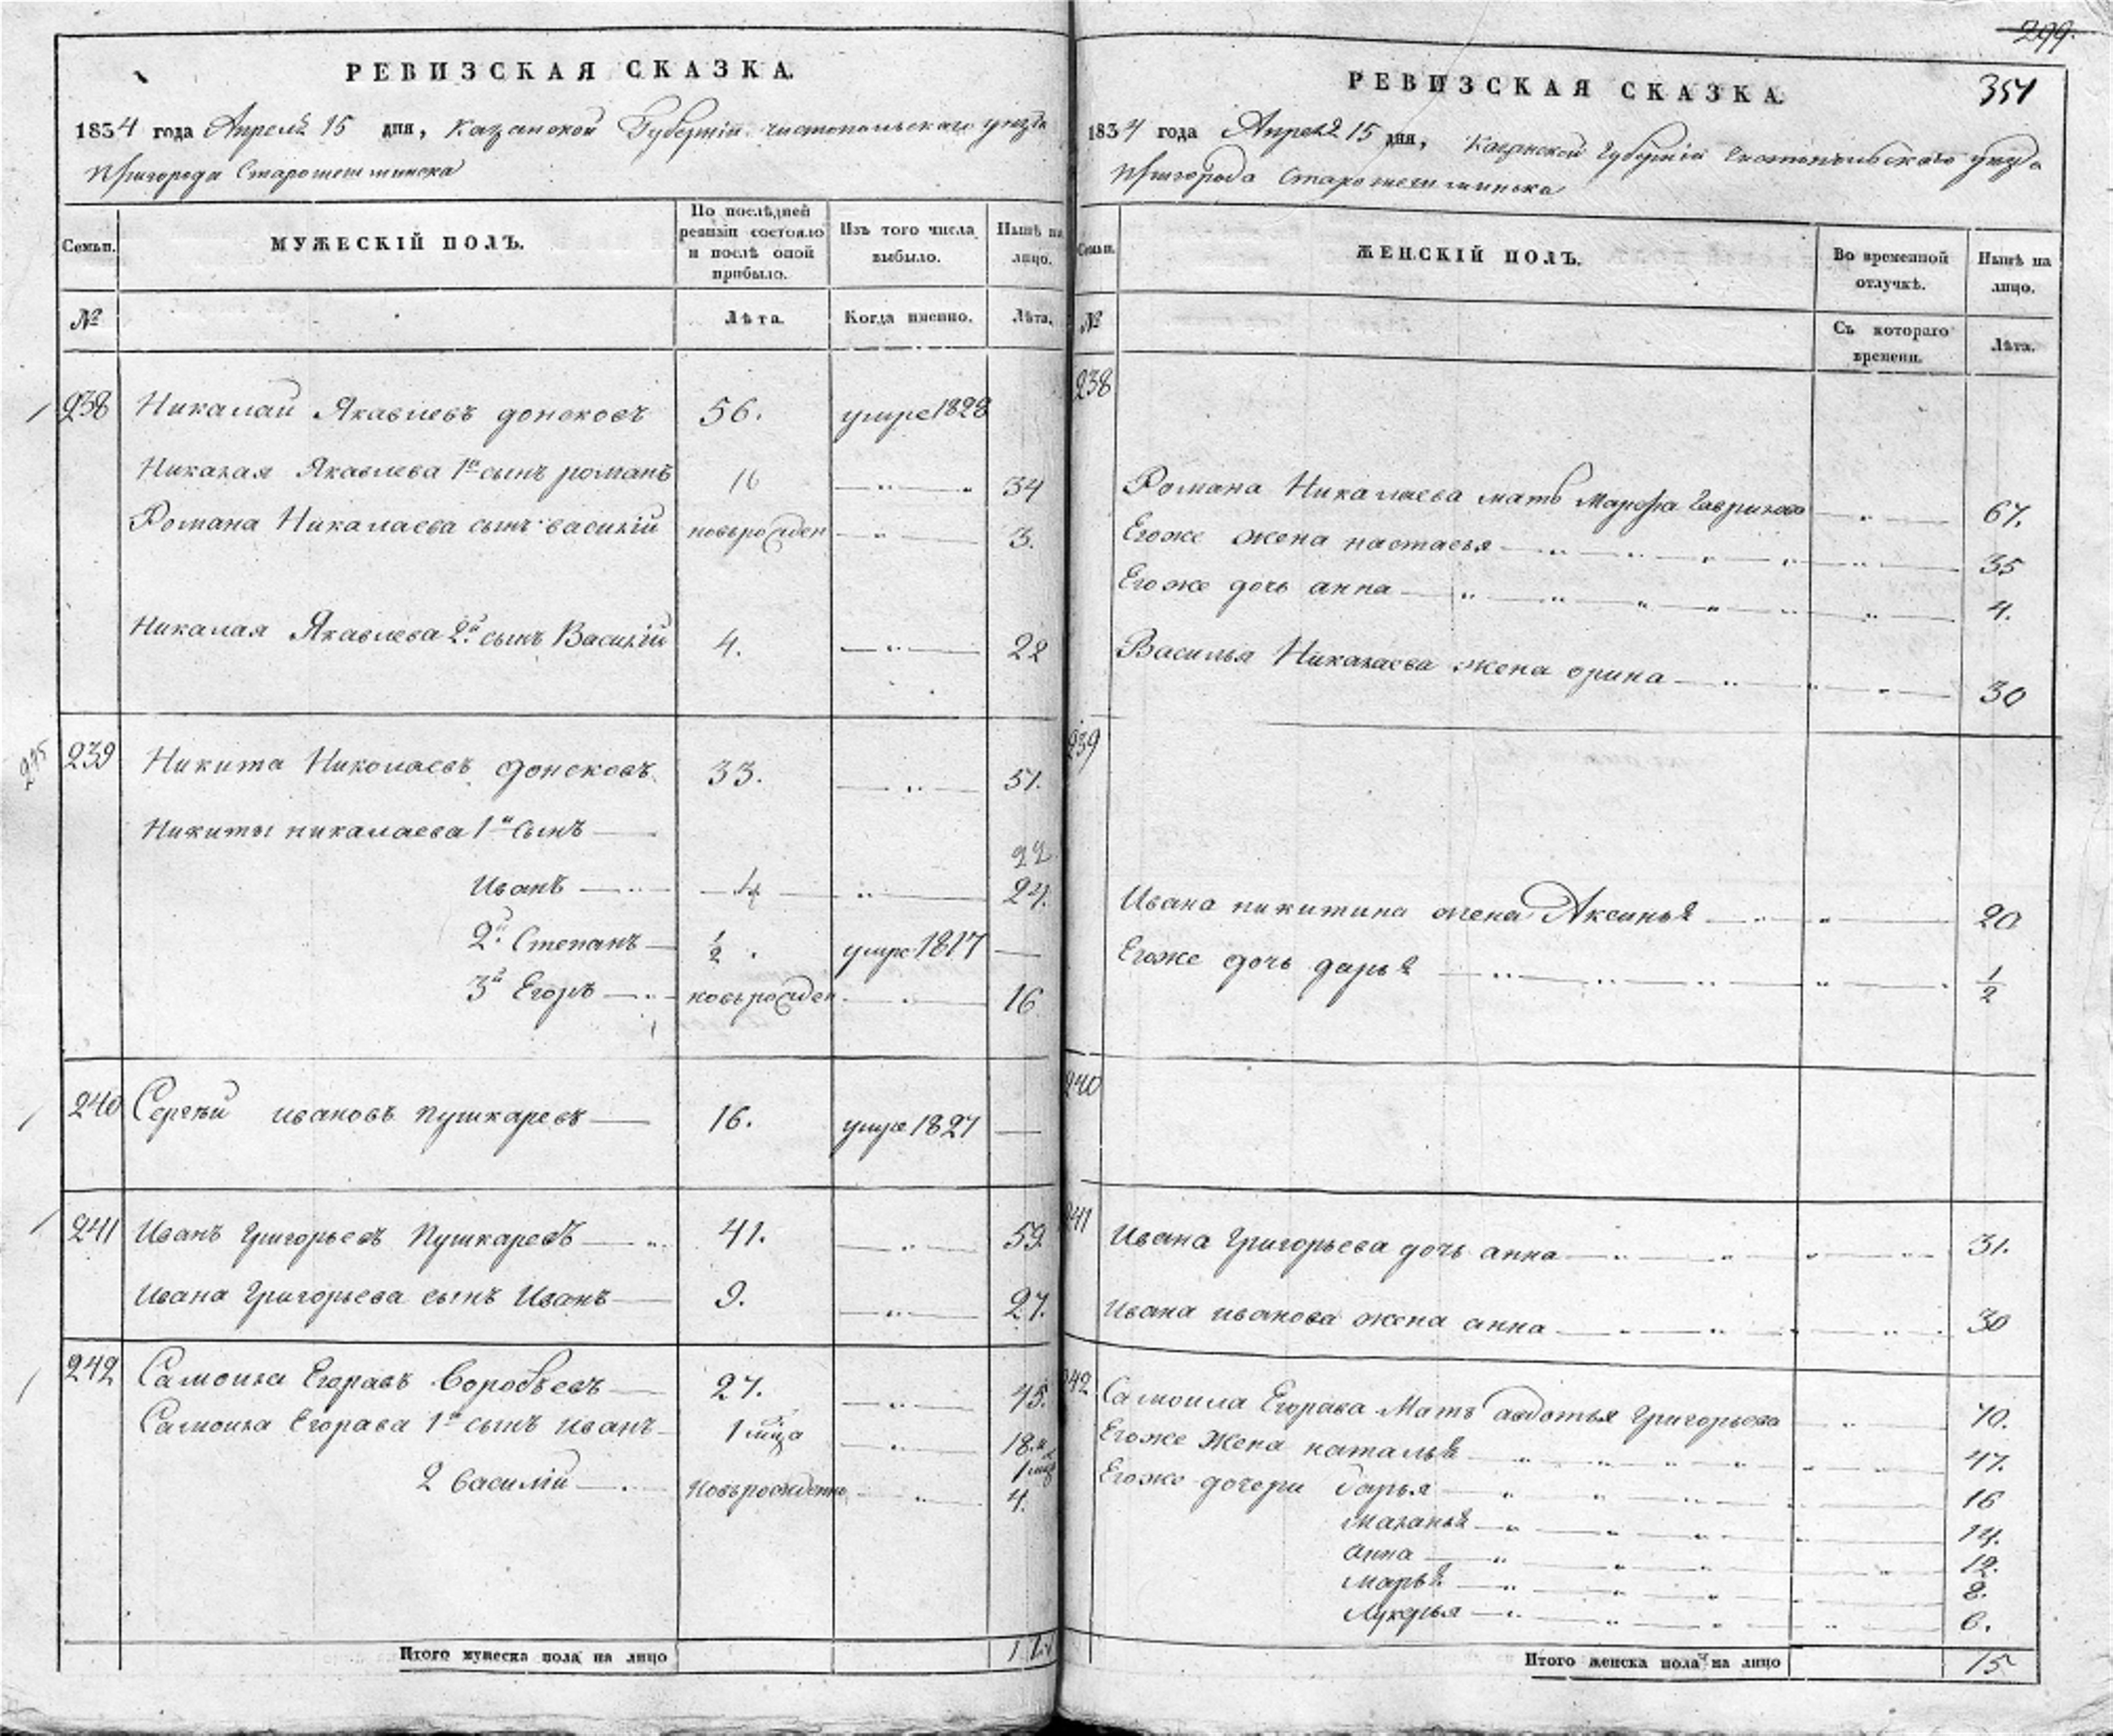 РЕВИЗСКАЯ СКАЗКА.
1834 года Апреля 15 дня, Казанской Губернiи Чистопольскаго уезда
Пригорода Старошешминска
Семьи.
МУЖЕСКIЙ ПОЛЪ.
По послѣдней ревизiи состояло и послѣ оной прибыло.
Изъ того числа выбыло.
Нынѣ на лицо.
№
Лѣта.
Когда именно.
Лѣта.
238 Никалай Якавлевъ донсковъ 56. умре 1828
Никалая Якавлева 1й сынъ романъ 16 34
Романа Никалаева сынъ василiй новърожден 3.
Никалая Якавлева 2й сынъ Василiй 4. 22
275
239 Никита Николаевъ донсковъ 33. 51.
Никиты никалаева 1й сынъ
22
Иванъ 4
2й Степанъ 1/2 умре 1817
3й Егоръ новърожден 16
240 Сергѣй ивановъ пушкаревъ 16. умре 1827
241 Иванъ Григорьевъ Пушкаревъ 41. 59
Ивана Григорьева сынъ Иванъ 9. 27.
242 Самоила Егоравъ Воробьевъ 27. 45.
Самоила Егорава 1й сынъ иванъ 1 мца 18. и 1 мца
2 василiй Новърожденно 4.
Итого мужеска пола на лицо
299.
351
РЕВИЗСКАЯ СКАЗКА.
1834 года Апреля 15 дня, Казанской Губернiи Чистопольскаго уезда
Пригорода Старошешминска
Семьи.
ЖЕНСКIЙ ПОЛЪ.
Во временной отлучкѣ.
Нынѣ на лицо.
№
Съ котораго времени.
Лѣта.
238
Романа Никалаева мать Марфа Гаврилова 67.
Егоже жена настасья 35
Егоже дочь анна 4.
Василья Никалаева жена орина 30
239
Ивана никитина жена Аксинья 20
Егоже дочь дарья 1/2
240
241 Ивана Григорьева дочь анна 31.
Ивана иванова жена анна 30
242 Самоила Егорава Мать авдотья Григорьева 70.
Егоже Жена наталья 47.
Егоже дочери дарья 16
Маланья 14.
Анна 12.
Марья 8.
Лукерья 6.
Итого женска пола на лицо 15